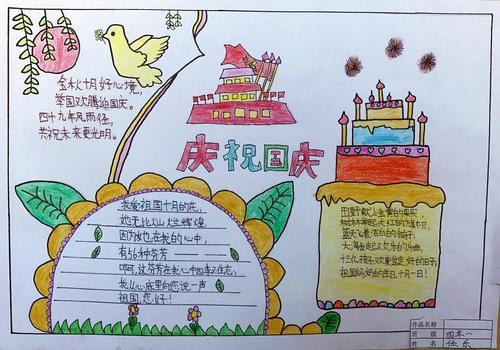 金秋十月好心境,
举国欢腾迎国庆。
四十九年风雨径,
共祝未来更光明。
庆祝国庆
我爱祖国十月的花,
她无比灿烂辉煌,
因为她在我的心中,
有56种芬芳——
啊,这芬芳在我心中
我从心底里向您说一声
祖国,您好!
田野献上金黄的果实,
蓝天飞着洁白的
大海
十三亿孩子欢聚
祖国妈妈的生日,十月一日!
作品名称
班 级 四年一
姓 名 任乐